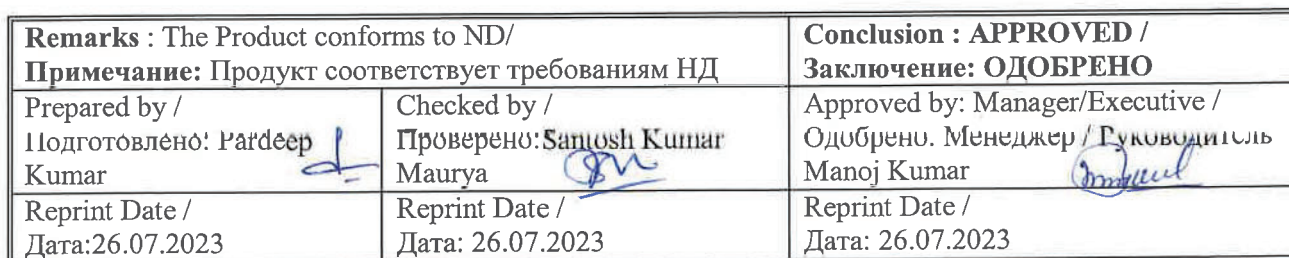 Remarks : The Product conforms to ND/
Примечание: Продукт соответствует требованиям НД
Conclusion : APPROVED /
Заключение: ОДОБРЕНО
Prepared by /
Подготовлено: Pardeep
Kumar
Checked by /
Проверено:Santosh Kumar
Maurya
Approved by: Manager/Executive /
Одобрено. Менеджер / Руководитель
Manoj Kumar
Reprint Date /
Дата:26.07.2023
Reprint Date /
Дата: 26.07.2023
Reprint Date /
Дата: 26.07.2023